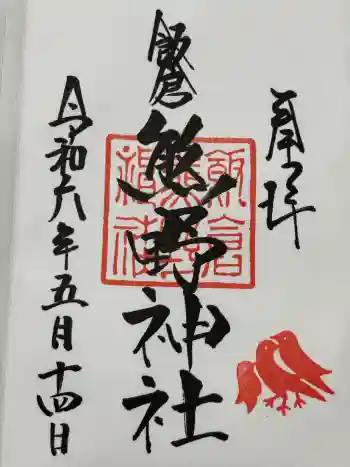 奉拝
飯倉
熊野神社
飯倉熊野神社
令和六年五月十四日